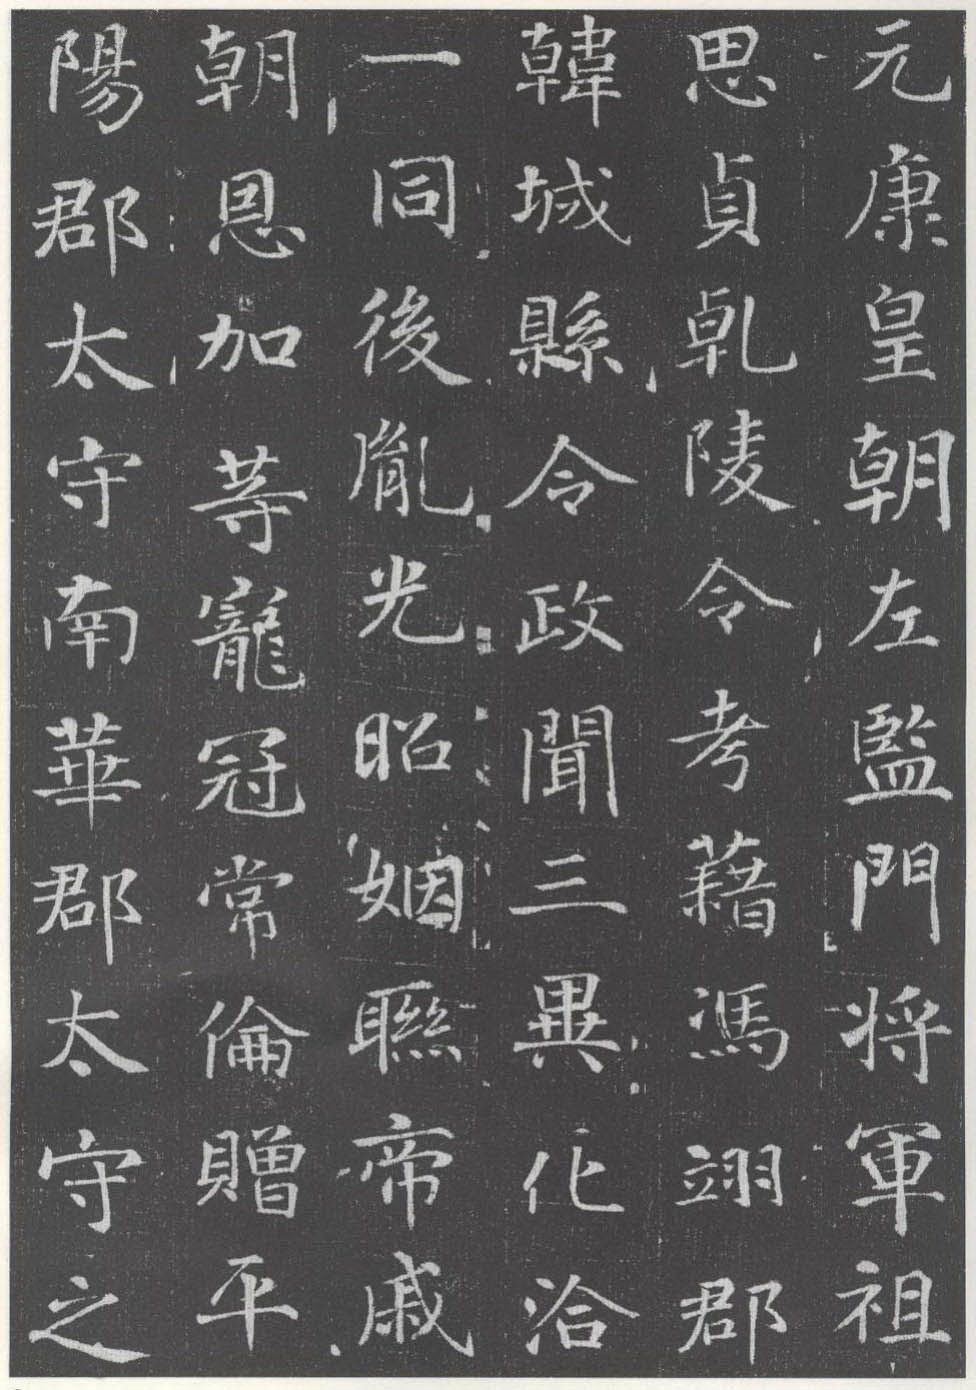 元康皇朝左監門将軍祖
思貞乹陵令考藉馮翊郡
韓城縣令政聞三異化洽
一同後胤光昭姻聯帝戚
朝恩加等寵冠常倫贈平
陽郡太守南華郡太守之